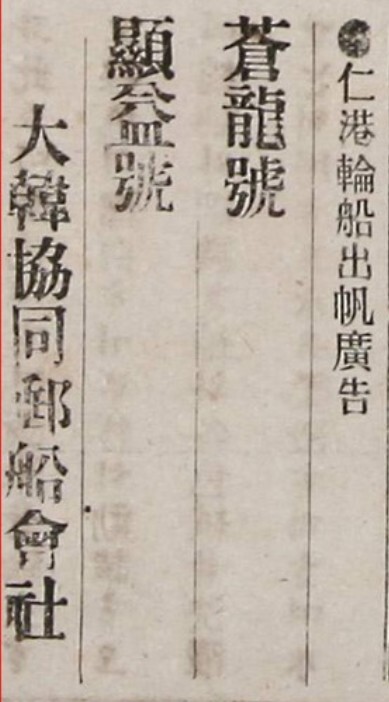 ●仁港輪船出帆廣告
蒼龍號
顯益號
大韓協同郵船會社